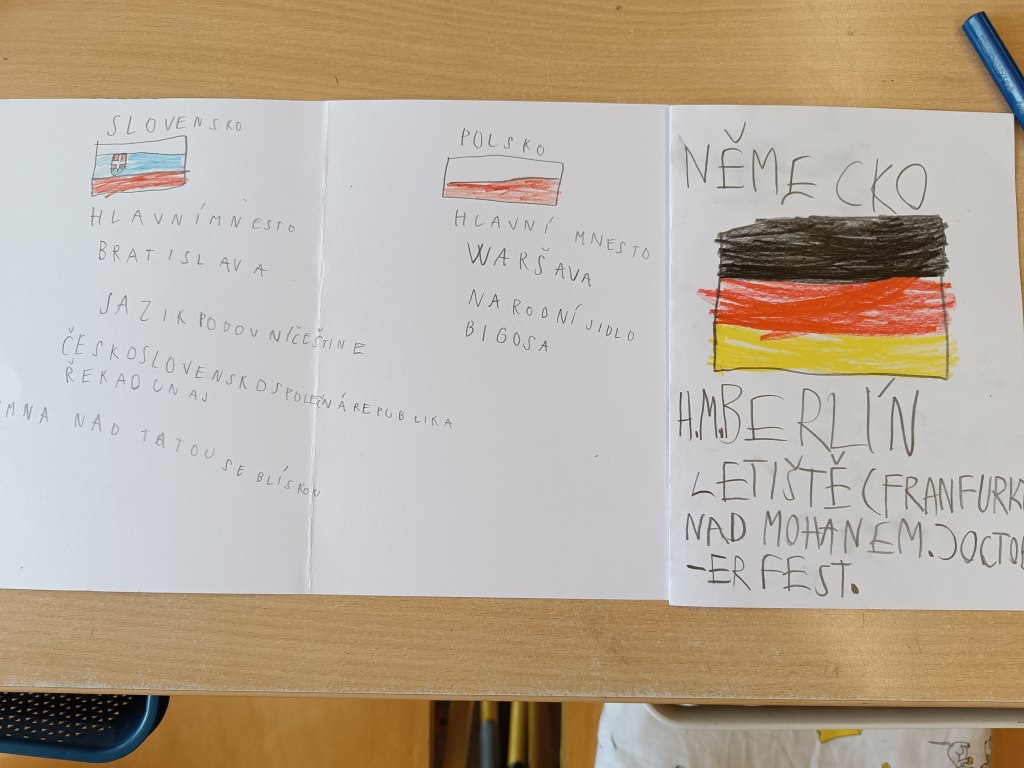 SLOVENSKO
HLAVNÍMNESTO
BRATISLAVA
JAZIK PODOVNÍČEŠTINE
ČESKOSLOVENSKOSPOLEČNÁREPUBLIKA
ŘEKADUNAJ
NAD TATOU SE BLÍSKOU
POLSKO
HLAVNÍ MNESTO
WARŠAVA
NARODNÍ JIDLO
BIGOSA
NĚMECKO
H.M.BERLÍN
LETIŠTĚ (FRANFURK
NAD MOHANEM.)OCTOB
-ERFEST.